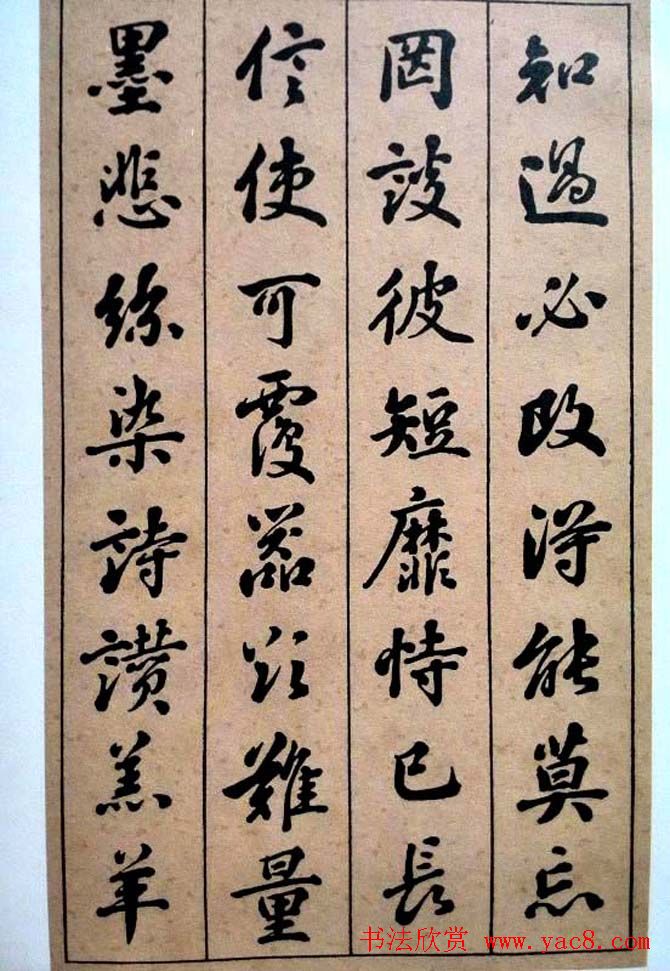 知過必改得能莫忘
罔談彼短靡恃己長
信使可覆器欲難量
墨悲絲染詩讚羔羊
书法欣赏 www.yac8.com